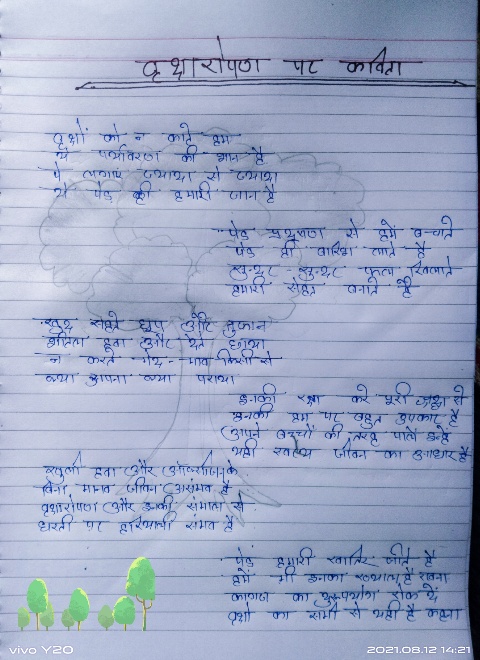 वृक्षारोपण पर कविता
वृक्षों को न काटे हम
ये पर्यावरण की शान है
पेड़ लगाए ज्यादा से ज्यादा
ये पेड़ ही हमारी जान है
पेड़ प्रदूषण से हमें बचाते
पेड़ ही बारिश लाते है
सुन्दर-सुन्दर फूल खिलाते
हमारी सेहत बनाते है
खुद सहते धूप और तुफान
शीतल हवा और देते छाया
न करते भेद-भाव किसी से
क्या अपना क्या पराया
इनकी रक्षा करे पूरी श्रद्धा से
इनकी हम पर बहुत उपकार है
अपने बच्चों की तरह पाले इन्हें
यही स्वस्थ जीवन का आधार है
खुली हवा और ऑक्सीजन के
बिना मानव जीवन असंभव है
वृक्षारोपण और इनकी संभाल से
धरती पर हरियाली संभव है
पेड़ हमारी खातिर जीते है
हमें भी इनका ख्याल है रखना
कागज का दुरुपयोग रोक दें
वृक्षो का सभी से यही है कहना
vivo Y20
2021.08.12 14:21